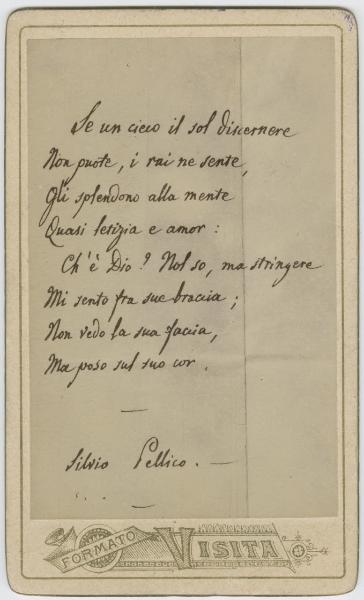 Se un cieco il sol discernere
Non puote, i rai ne sente,
Gli splendono alla mente
Quasi letizia e amor:
Ch'è Dio? Nol so, ma stringere
Mi sento fra sue braccia;
Non vedo la sua faccia,
Ma poso sul suo cor.
Silvio Pellico.
FORMATO VISITA